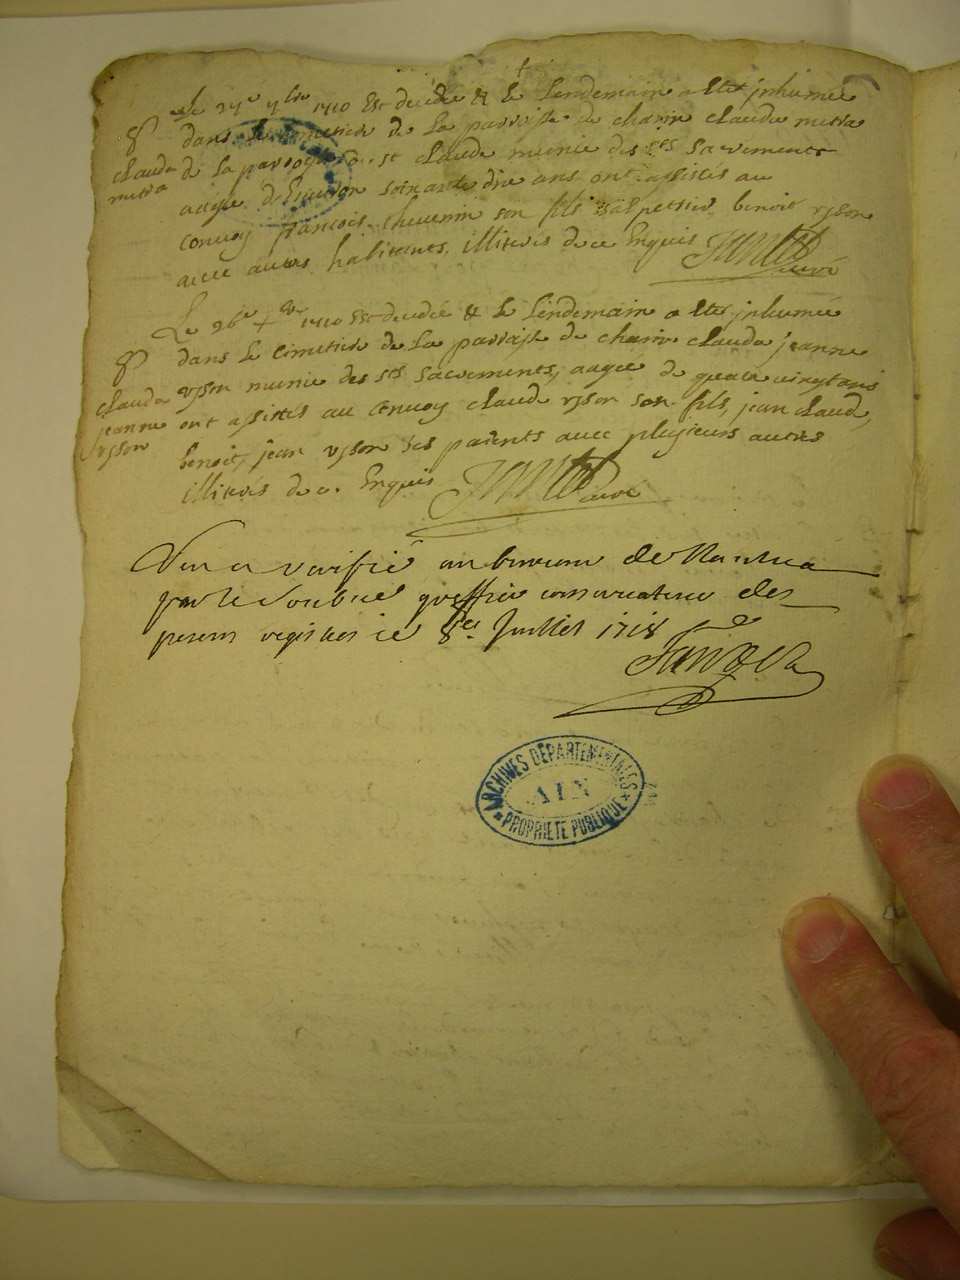 Le 27e 7bre 1710 Est decedée & le Lendemain a Eté jnhumée
dans le cimetiere de La parroisse de charix claudu mutra
de la parroisse st claude munie des sts Sacrements
aagée d'Environ soixante dix ans ont assistés au
Convoy françois thevenin son fils benoit ryson
avec autres habitants illiterés de ce Enquis
curé
claudu
mutra
Le 26e xbre 1710 Est decedée & le Lendemain a Eté jnhumée
dans le Cimetiere de La parroisse de charix clauda jeanne
ryson munie des sts Sacrements, aagée de quatre vingt ans
ont assistés au Convoy claude ryson son fils, jean claude,
benoit, jean ryson ses parents avec plusieurs autres
illiterés de ce Enquis
curé
clauda
jeanne
ryson
Veu et verifié au bureau de Nantua
par le Soubné greffier conservateur des
presens registres ce 8es Juillet 1718
ARCHIVES DÉPARTEMENTALES
AIN
PROPRIÉTÉ PUBLIQUE